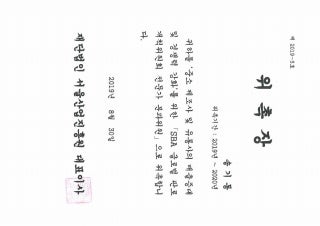 제 2019-5호
위 촉 장
송 기 홍
위촉기간 : 2019년 ~ 2020년
귀하를 '중소 제조사 및 유통사의 매출증대
및 경쟁력 강화'를 위한 「SBA 글로벌 판로
개척위원회 전문가 분과위원」으로 위촉합니
다.
2019년 8월 30일
재단법인 서울산업진흥원 대표이사